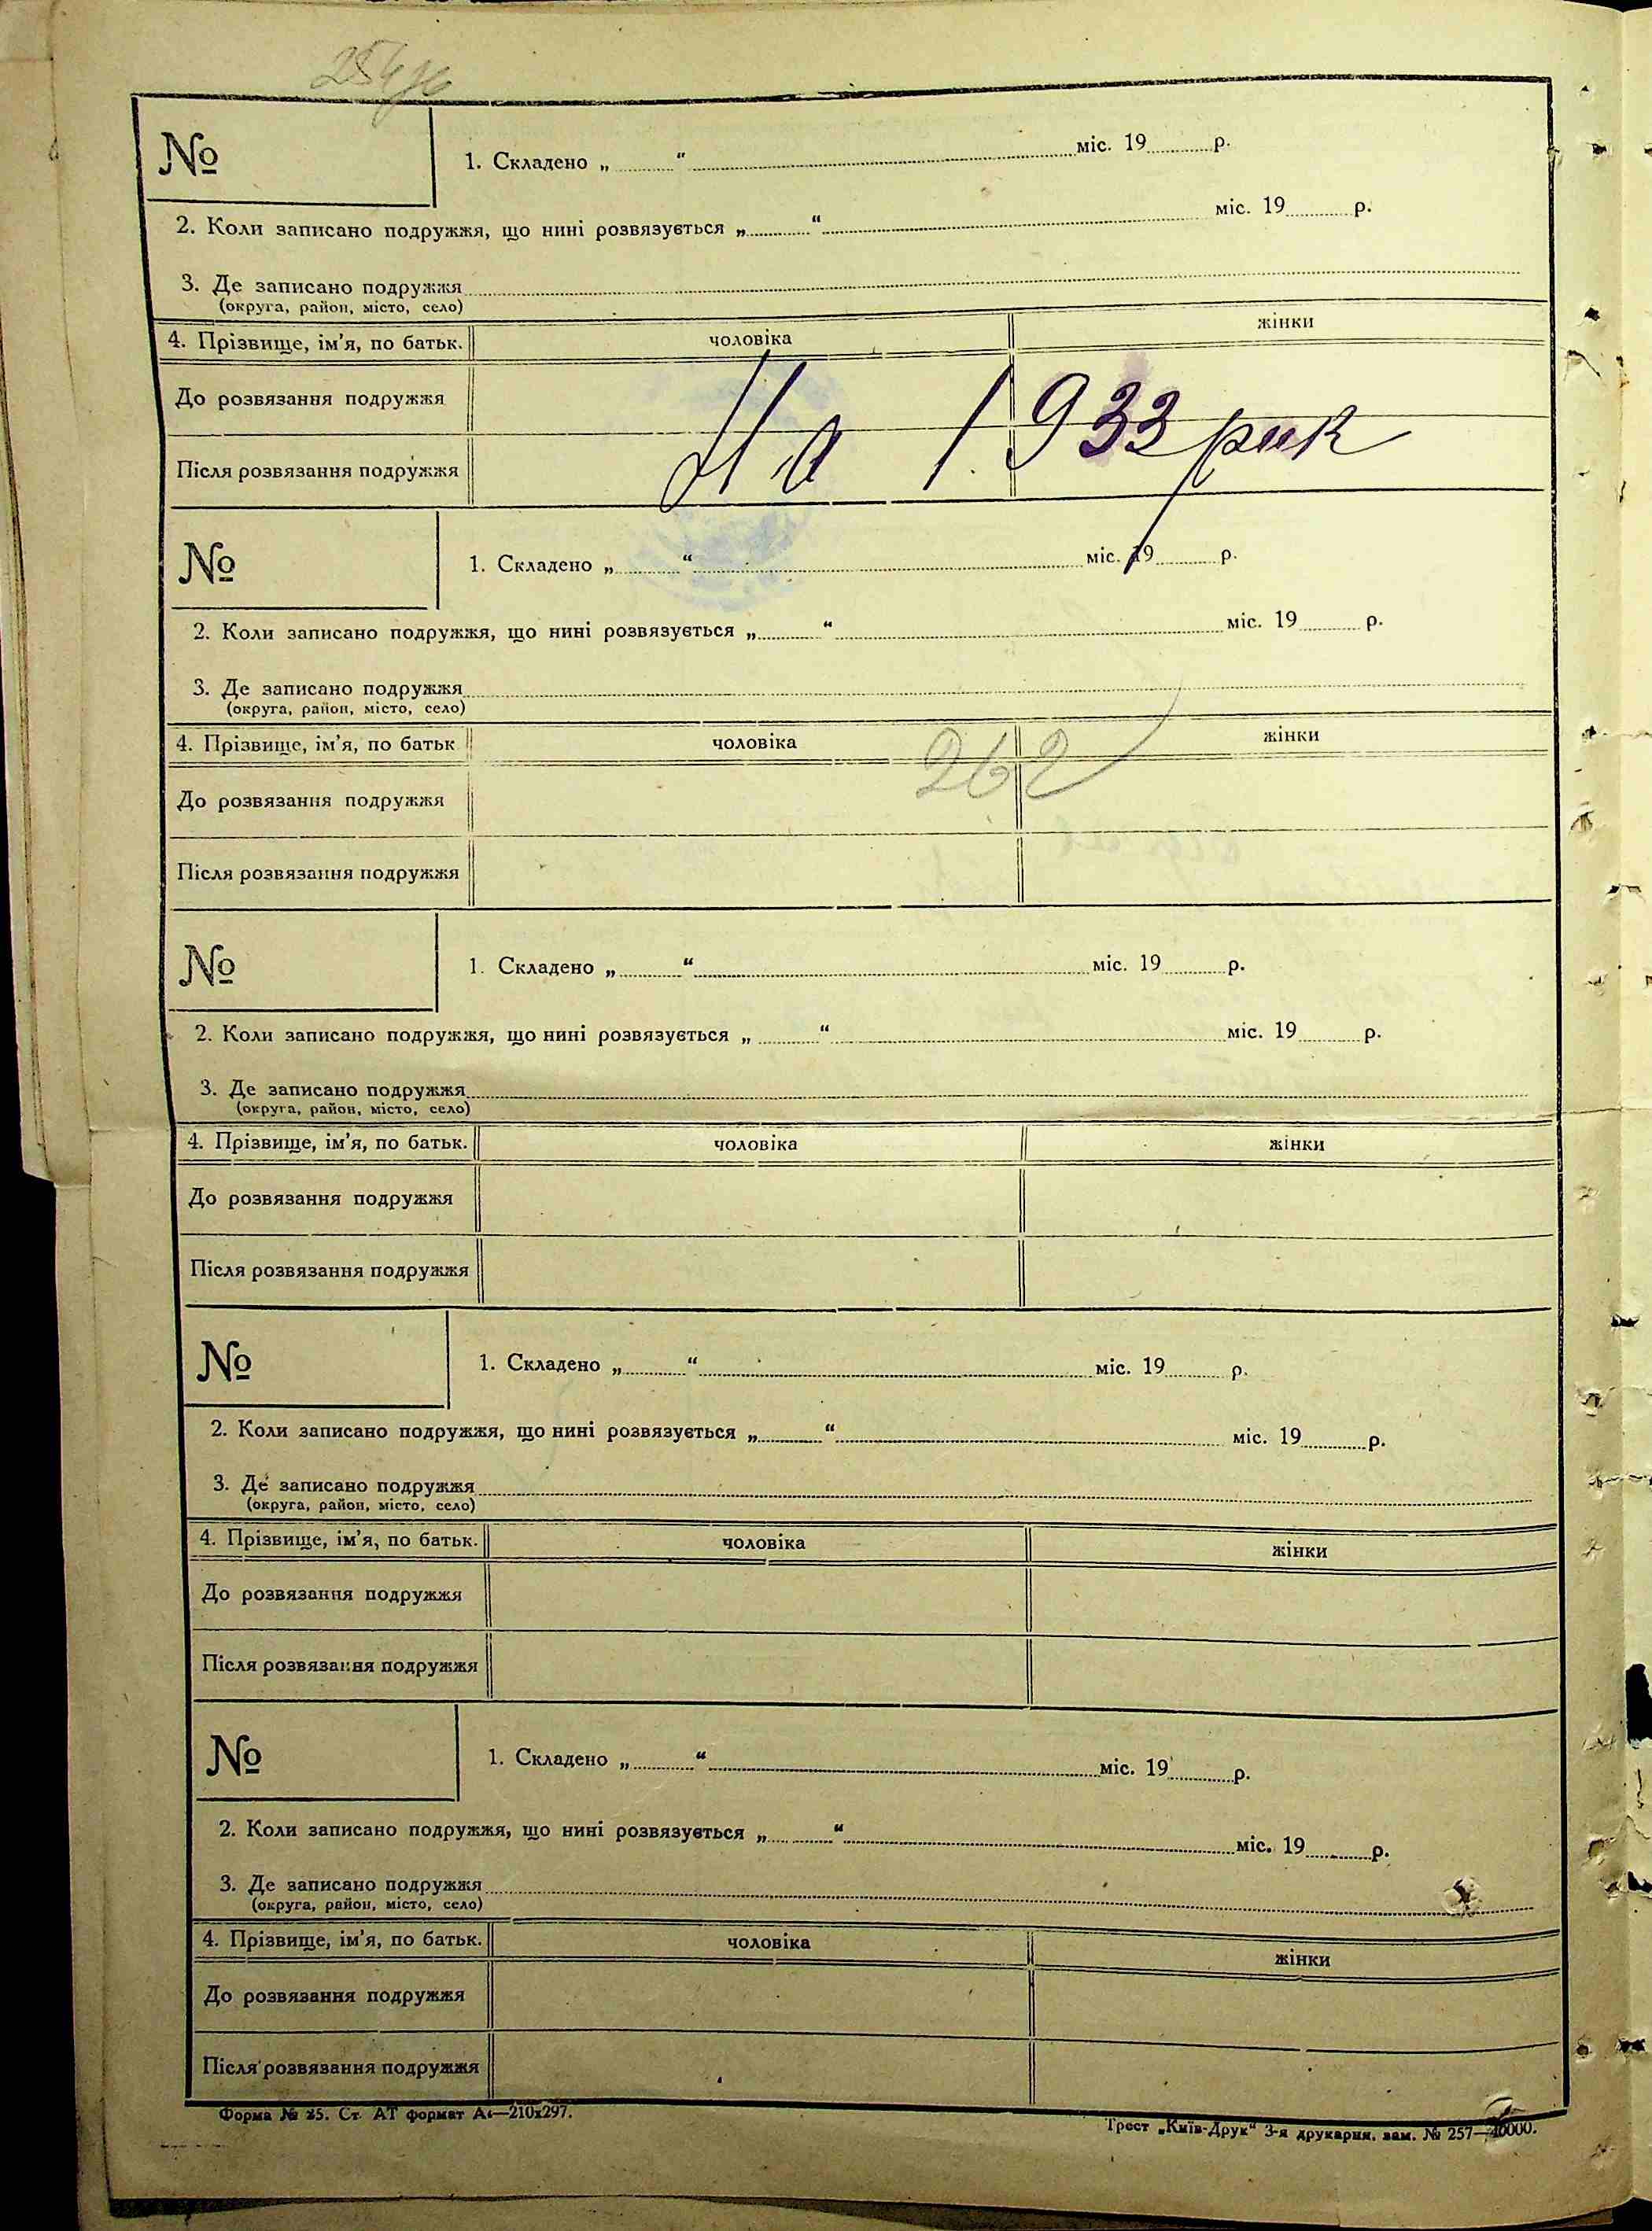 №
1. Складено „ “ міс. 19 р.
2. Коли записано подружжя, що нині розвязується „ “ міс. 19 р.
3. Де записано подружжя
(округа, район, місто, село)
4. Прізвище, ім'я, по батьк. чоловіка жінки
До розвязання подружжя
На 1933 рик
Після розвязання подружжя
№
1. Складено „ “ міс. 19 р.
2. Коли записано подружжя, що нині розвязується „ “ міс. 19 р.
3. Де записано подружжя
(округа, район, місто, село)
4. Прізвище, ім'я, по батьк чоловіка жінки
262
До розвязання подружжя
Після розвязання подружжя
№
1. Складено „ “ міс. 19 р.
2. Коли записано подружжя, що нині розвязується „ “ міс. 19 р.
3. Де записано подружжя
(округа, район, місто, село)
4. Прізвище, ім'я, по батьк. чоловіка жінки
До розвязання подружжя
Після розвязання подружжя
№
1. Складено „ “ міс. 19 р.
2. Коли записано подружжя, що нині розвязується „ “ міс. 19 р.
3. Де записано подружжя
(округа, район, місто, село)
4. Прізвище, ім'я, по батьк. чоловіка жінки
До розвязання подружжя
Після розвязання подружжя
№
1. Складено „ “ міс. 19 р.
2. Коли записано подружжя, що нині розвязується „ “ міс. 19 р.
3. Де записано подружжя
(округа, район, місто, село)
4. Прізвище, ім'я, по батьк. чоловіка жінки
До розвязання подружжя
Після розвязання подружжя
Форма № 25. Ст. АТ формат А4—210х297.
Трест „Київ-Друк“ 3-я друкарня, зам. № 257—